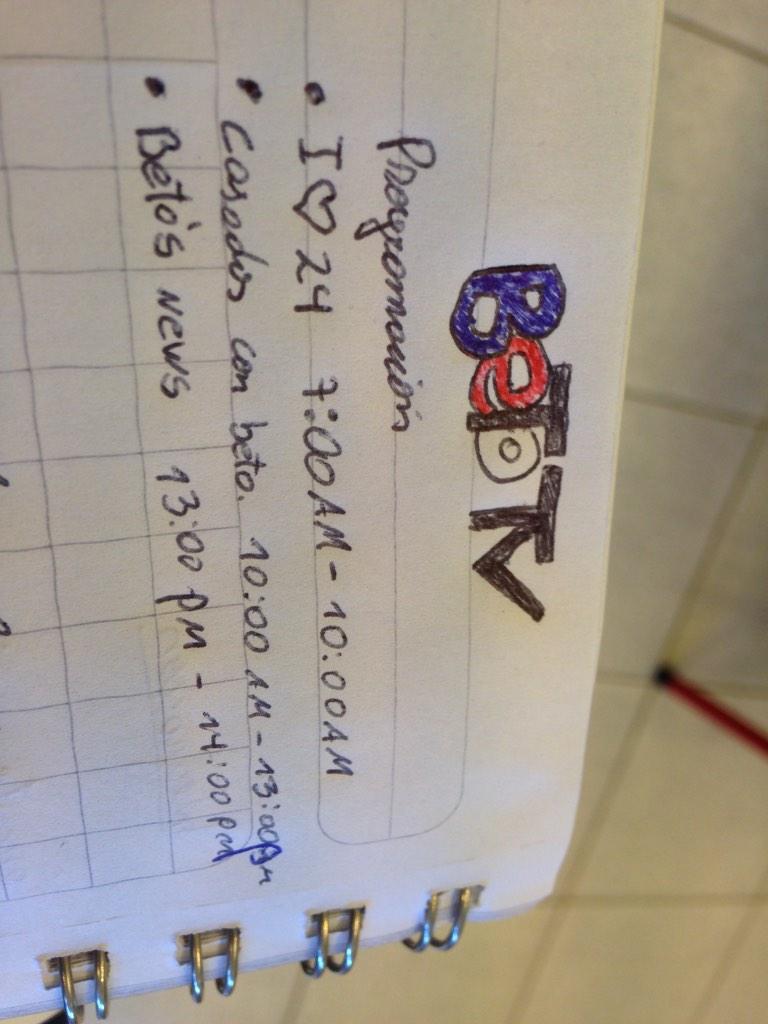 BeTO TV
Programación
• I ♡ 24 7:00 AM - 10:00 AM
• Casados con beto. 10:00 AM - 13:00 pm
• Beto's news 13:00 pm - 14:00 pm